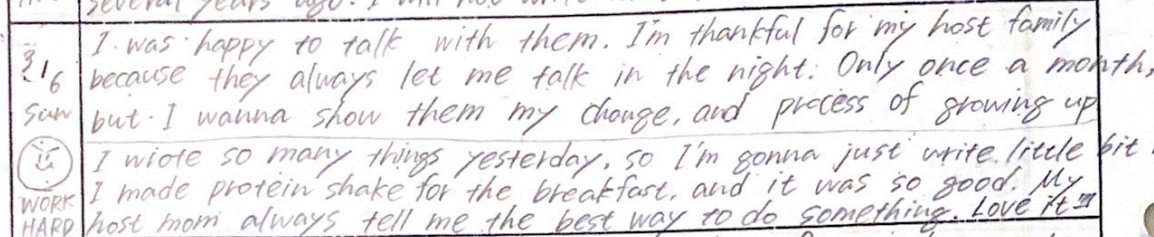 several years ago. I will not write
I was happy to talk with them. I'm thankful for my host family
3/16 because they always let me talk in the night. Only once a month,
Sun but I wanna show them my change, and process of growing up
I wrote so many things yesterday, so I'm gonna just write little bit.
WORK I made protein shake for the breakfast, and it was so good. My
HARD host mom always tell me the best way to do something. Love it!!!